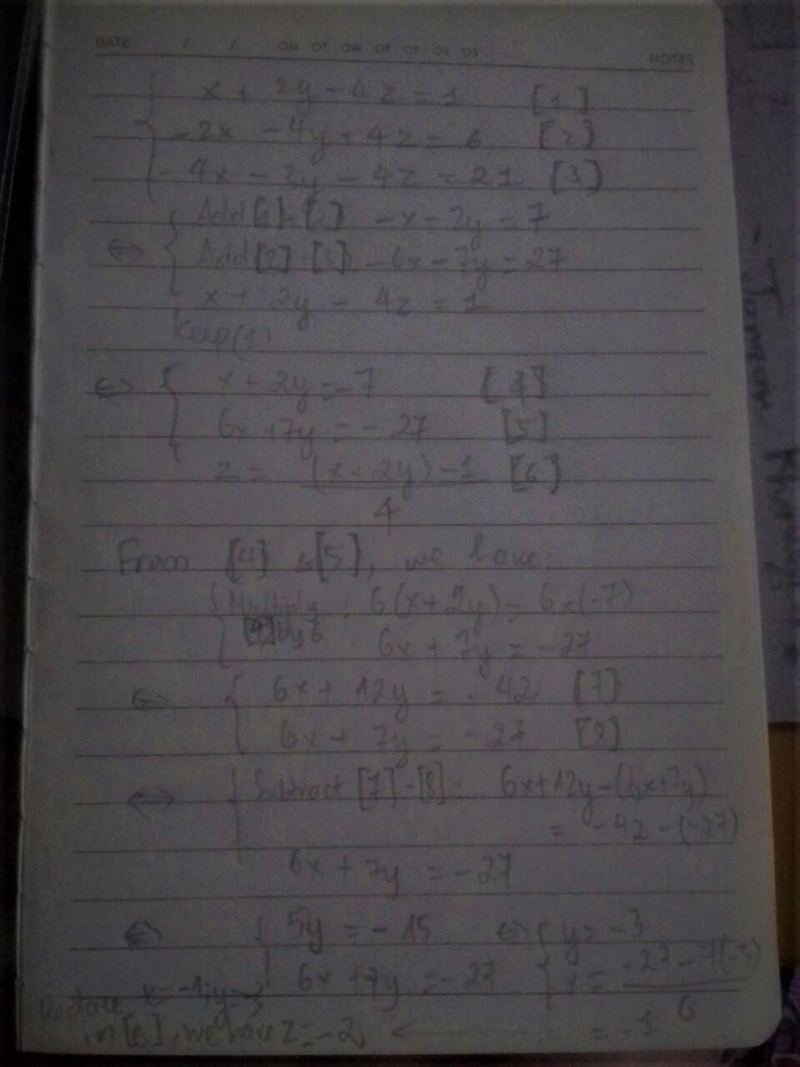 DATE / / NOTES
x + 2y - 4z = 1 [1]
-2x - 4y + 4z = 6 [2]
-4x - 3y - 4z = 21 [3]
Add [1] [2] -x - 2y = 7
<=> Add [2] [3] -6x - 7y = 27
x + 2y - 4z = 1
Keep (1)
<=> x + 2y = -7 [4]
6x + 7y = -27 [5]
z = (x + 2y) - 1 [6]
4
From [4] & [5], we have:
Multiply 6(x + 2y) = 6x(-7)
[4] by 6 6x + 7y = -27
<=> 6x + 12y = -42 [7]
6x + 7y = -27 [8]
<=> Subtract [7] - [8] : 6x + 12y - (6x + 7y)
= -42 - (-27)
6x + 7y = -27
<=> 5y = -15 <=> y = -3
6x + 7y = -27 x = -27 - 7(-3)
6
Replace x = -1; y = -3
in [6], we have z = -2 <- = -1